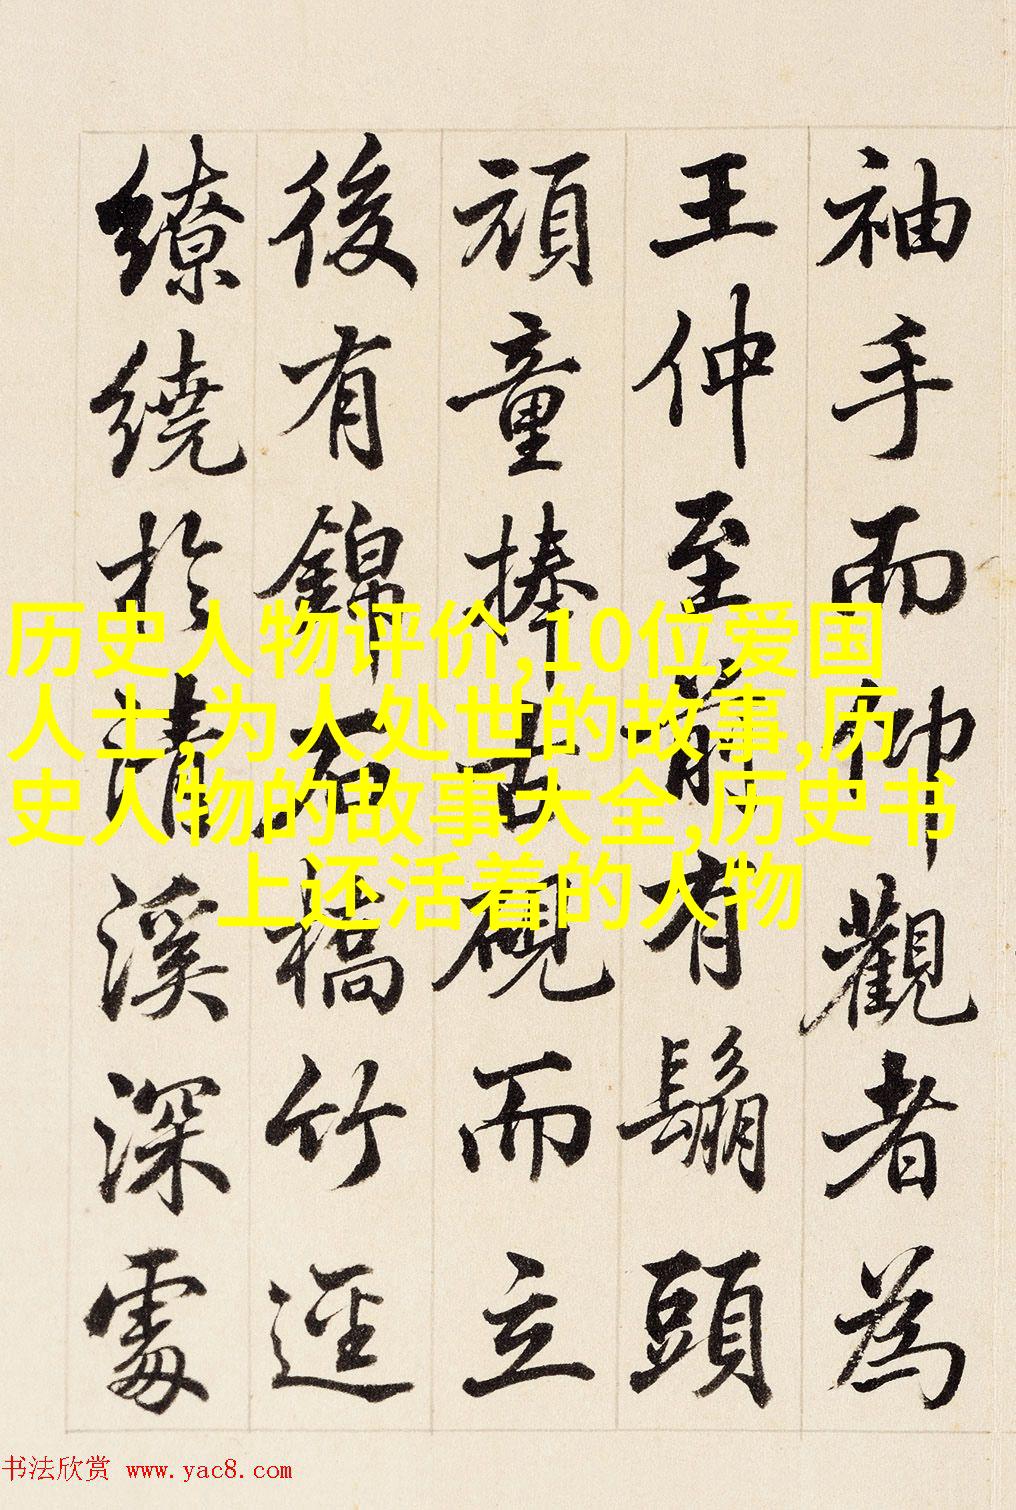 袖手而仰觀者為
王仲至前有鬅頭
頑童捧古硯而立
後有錦石橋竹逕
繚繞於清溪深處
历史人物评价,10位爱国
人士,为人处世的故事,历
史人物的故事大全,历史书
上还活着的人物
书法欣赏 www.yac8.com